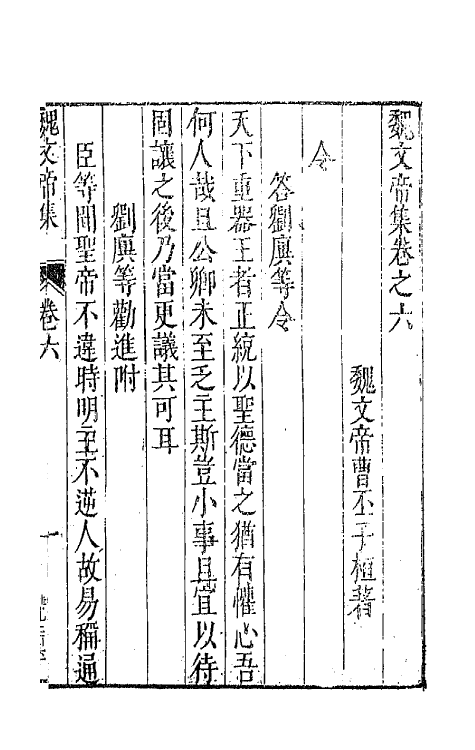 魏文帝集卷之六
魏文帝曹丕子桓著
令
答劉廙等令
天下重器王者正統以聖德當之猶有懼心吾
何人哉且公卿未至乏主斯豈小事且宜以待
固讓之後乃當更議其可耳
劉廙等勸進附
臣等聞聖帝不違時明主不逆人故易稱通
魏文帝集 卷六 一